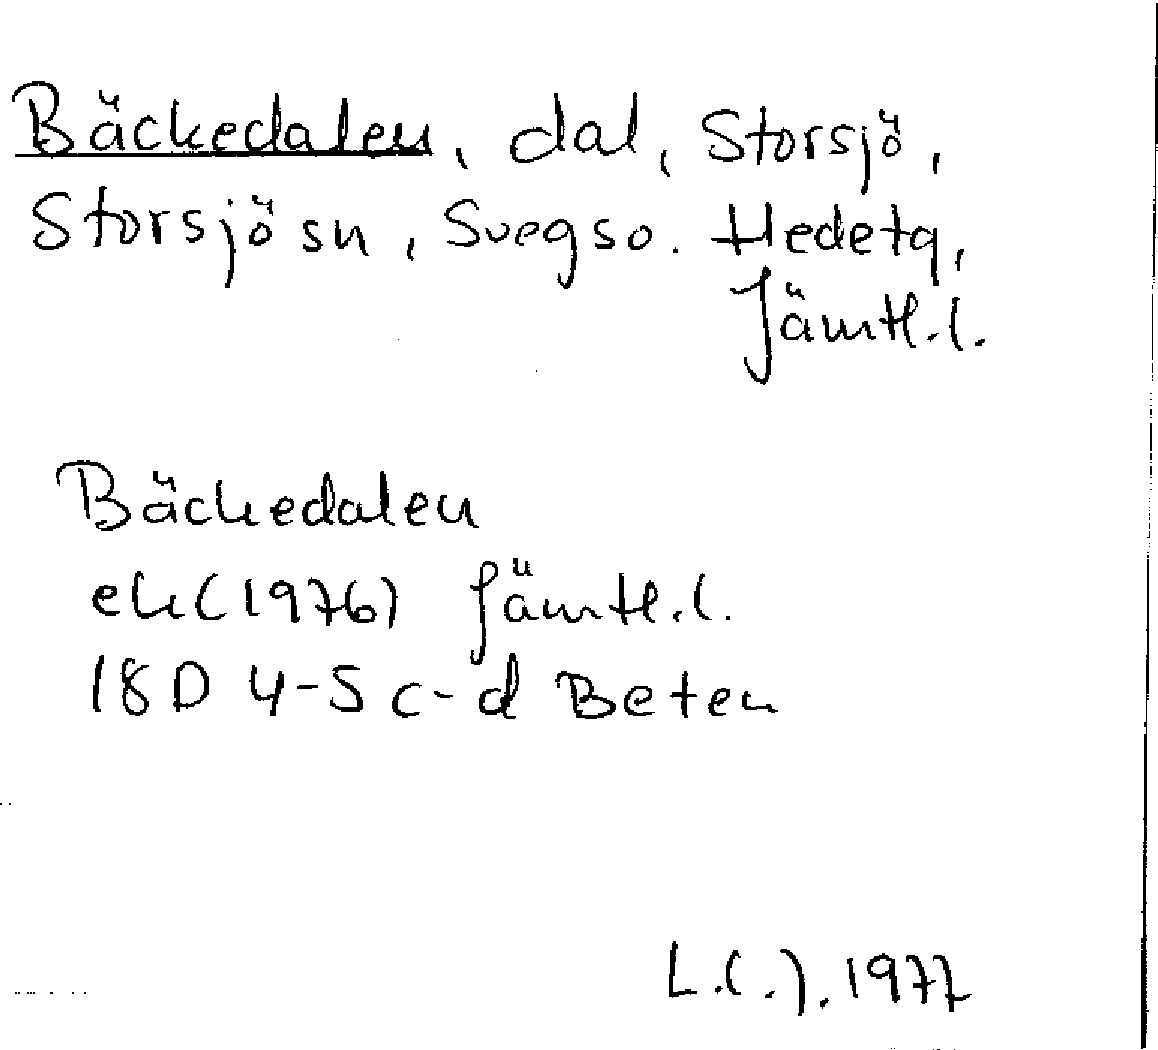 Bäckedalen, dal, Storsjö,
Storsjö sn, Svegs o. Hede tg,
Jämtl.l.
Bäckedalen
ek (1976) Jämtl.l.
18D 4-5 c-d Beten
L.(.). 1977